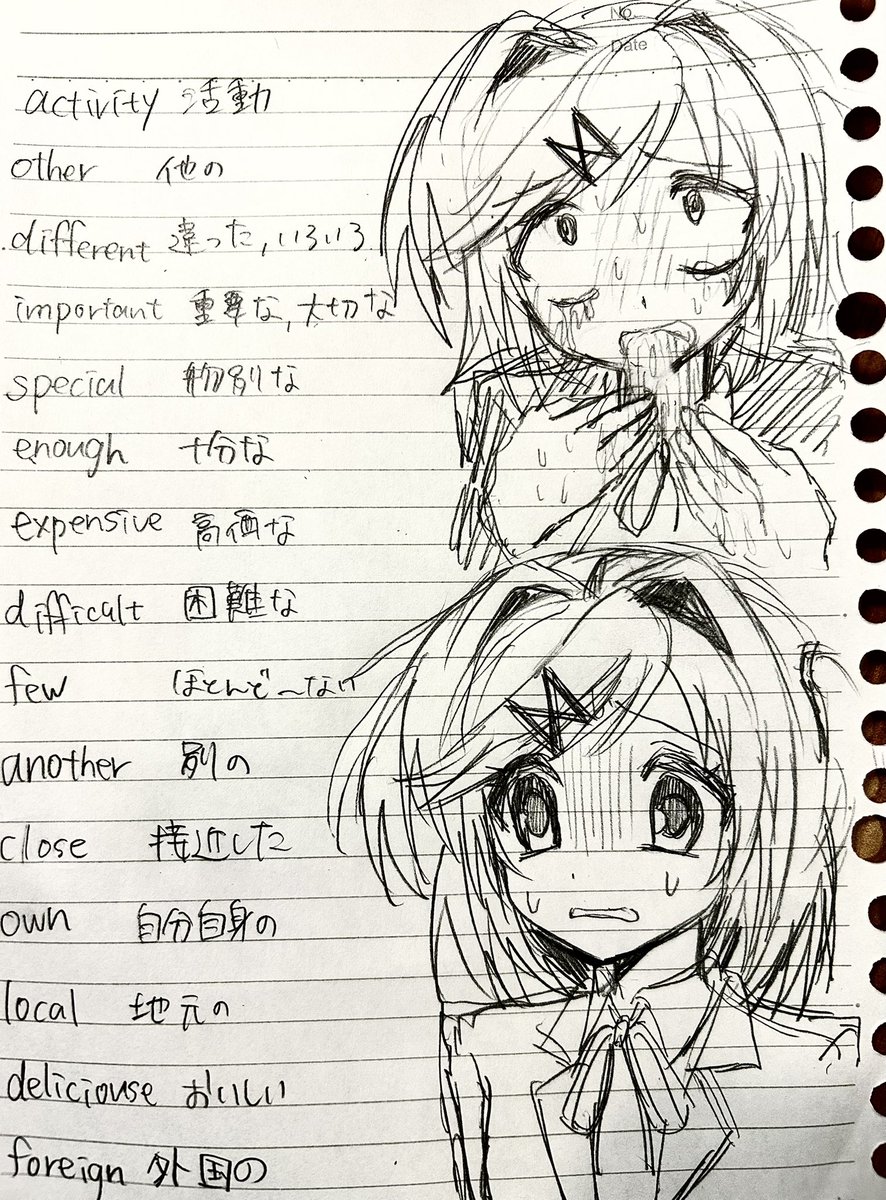 No.
Date
activity 活動
other 他の
different 違った,いろいろ
important 重要な,大切な
special 特別な
enough 十分な
expensive 高価な
difficult 困難な
few ほとんど〜ない
another 別の
close 接近した
own 自分自身の
local 地元の
deliciouse おいしい
foreign 外国の